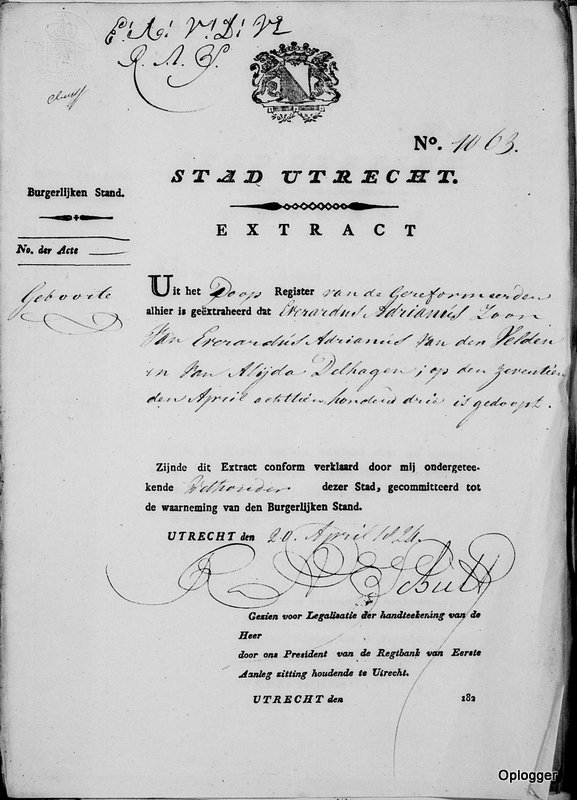 E: A: V: D: V:
R. A. S.
No. 1063.
STAD UTRECHT.
Burgerlijken Stand.
EXTRACT
No. der Acte
Geboorte
Uit het Doop Register van de Gereformeerden
alhier is geëxtraheerd dat Everardus Adrianus Zoon
Van Everardus Adrianus van der Velden
en Van Alijda Delhagen; op den zeventien
den April achttien honderd drie is gedoopt.
Zijnde dit Extract conform verklaard door mij ondergetee-
kende Wethouder dezer Stad, gecommitteerd tot
de waarneming van den Burgerlijken Stand.
UTRECHT den 20. April 1824.
Gezien voor Legalisatie der handteekening van de
Heer
door ons President van de Regtbank van Eerste
Aanleg zitting houdende te Utrecht.
UTRECHT den 182
Oplogger